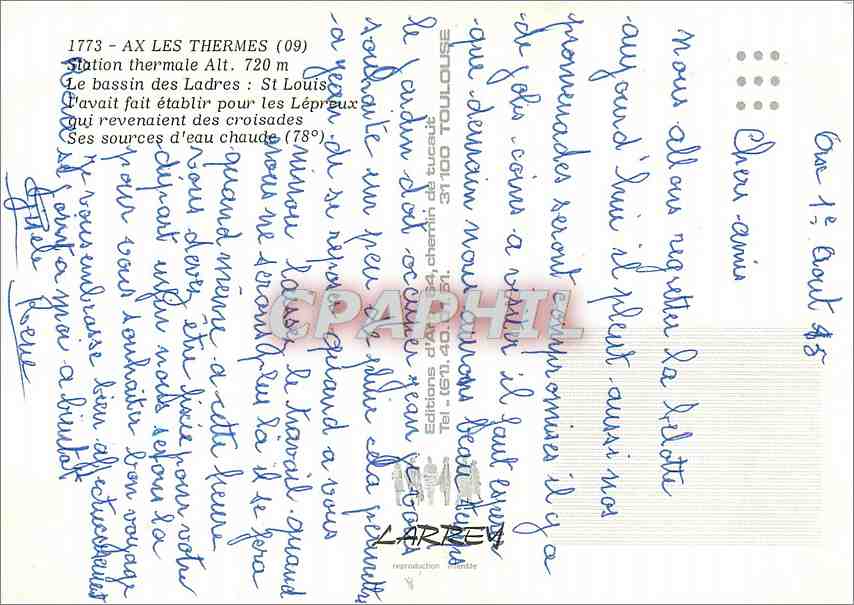 1773 - AX LES THERMES (09)
Station thermale Alt. 720 m
Le bassin des Ladres : St Louis
l'avait fait établir pour les Lépreux
qui revenaient des croisades
Ses sources d'eau chaude (78°).
Editions d'Art 64, chemin de tucaut
Tel - (61). 40. 31. 31100 TOULOUSE
LARREY
reproduction interdite
CPAPHIL
Ax 1e Aout 85
Chers amis
nous allons regretter la belotte
aujourd'hui il pleut aussi nos
promenades seront compromises il y a
de jolis coins a visiter il faut esperer
que demain nous aurons beau temps
le jardin doit occuper jean
souhaite un peu de pluie cela permettra
a jean de se reposer quand a vous
minou laisser le travail quand
nous ne serons plus là il se fera
quand même a cette heure
vous devez être fixée pour votre
départ enfin nous sejour la
pour vous souhaiter bon voyage
je vous embrasse bien affectueusement
se joint a moi a bientot